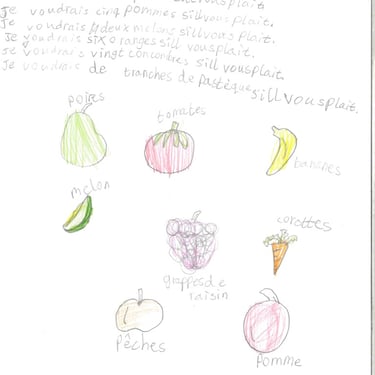 Je voudrais cinq pommes sillvousplait.
Je voudrais deux melons sillvousplait.
Je voudrais six oranges sill vousplait.
Je voudrais vingt concombres sill vousplait.
Je voudrais de tranches de pastèque sill vousplait.
poires
tomates
bananes
melon
carottes
grappes de
raisin
Pêches
Pomme